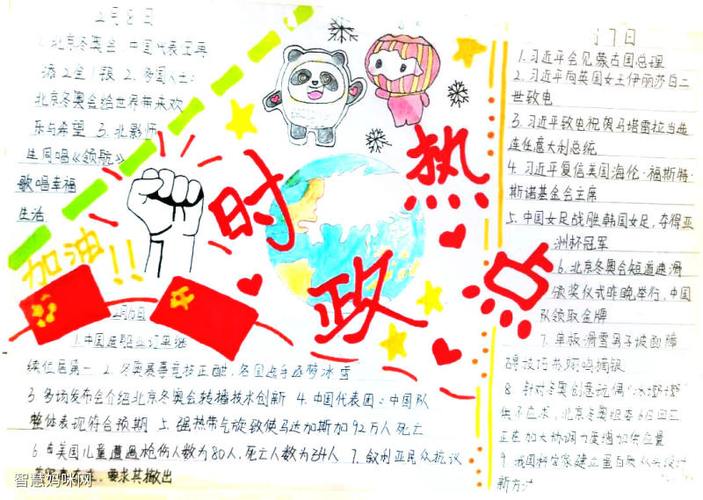 2月8日
1. 北京冬奥会 中国代表团再
添2金1银 2. 多国人士：
北京冬奥会给世界带来欢
乐与希望 3. 北影师
生同唱《领航》
歌唱幸福
生活
加油!!
时政热点
7日
1. 习近平会见蒙古国总理
2. 习近平向英国女王伊丽莎白二
世致电
3. 习近平致电祝贺马塔雷拉当选
连任意大利总统
4. 习近平复信美国海伦·福斯特·
斯诺基金会主席
5. 中国女足战胜韩国女足，夺得亚
洲杯冠军
6. 北京冬奥会短道速滑
颁奖仪式昨晚举行，中国
队领取金牌
7. 单板滑雪男子坡面障
碍技巧苏翊鸣摘银
8. 针对冬奥创意玩偶“冰墩墩”
供不应求，北京冬奥组委6日回应
正在加大协调力度增加供应量
9. 我国科学家建立蛋白质从头设计
新方法
1. 中国造船业订单继
续位居第一 2. 冬奥赛事竞技正酣，各国选手逐梦冰雪
3. 多场发布会介绍北京冬奥会转播技术创新 4. 中国代表团：中国队
整体表现符合预期 5. 强热带气旋致使马达加斯加92万人死亡
6. 美国儿童遭遇枪伤人数为80人，死亡人数为24人 7. 叙利亚民众抗议
要求其撤出
智慧妈咪网